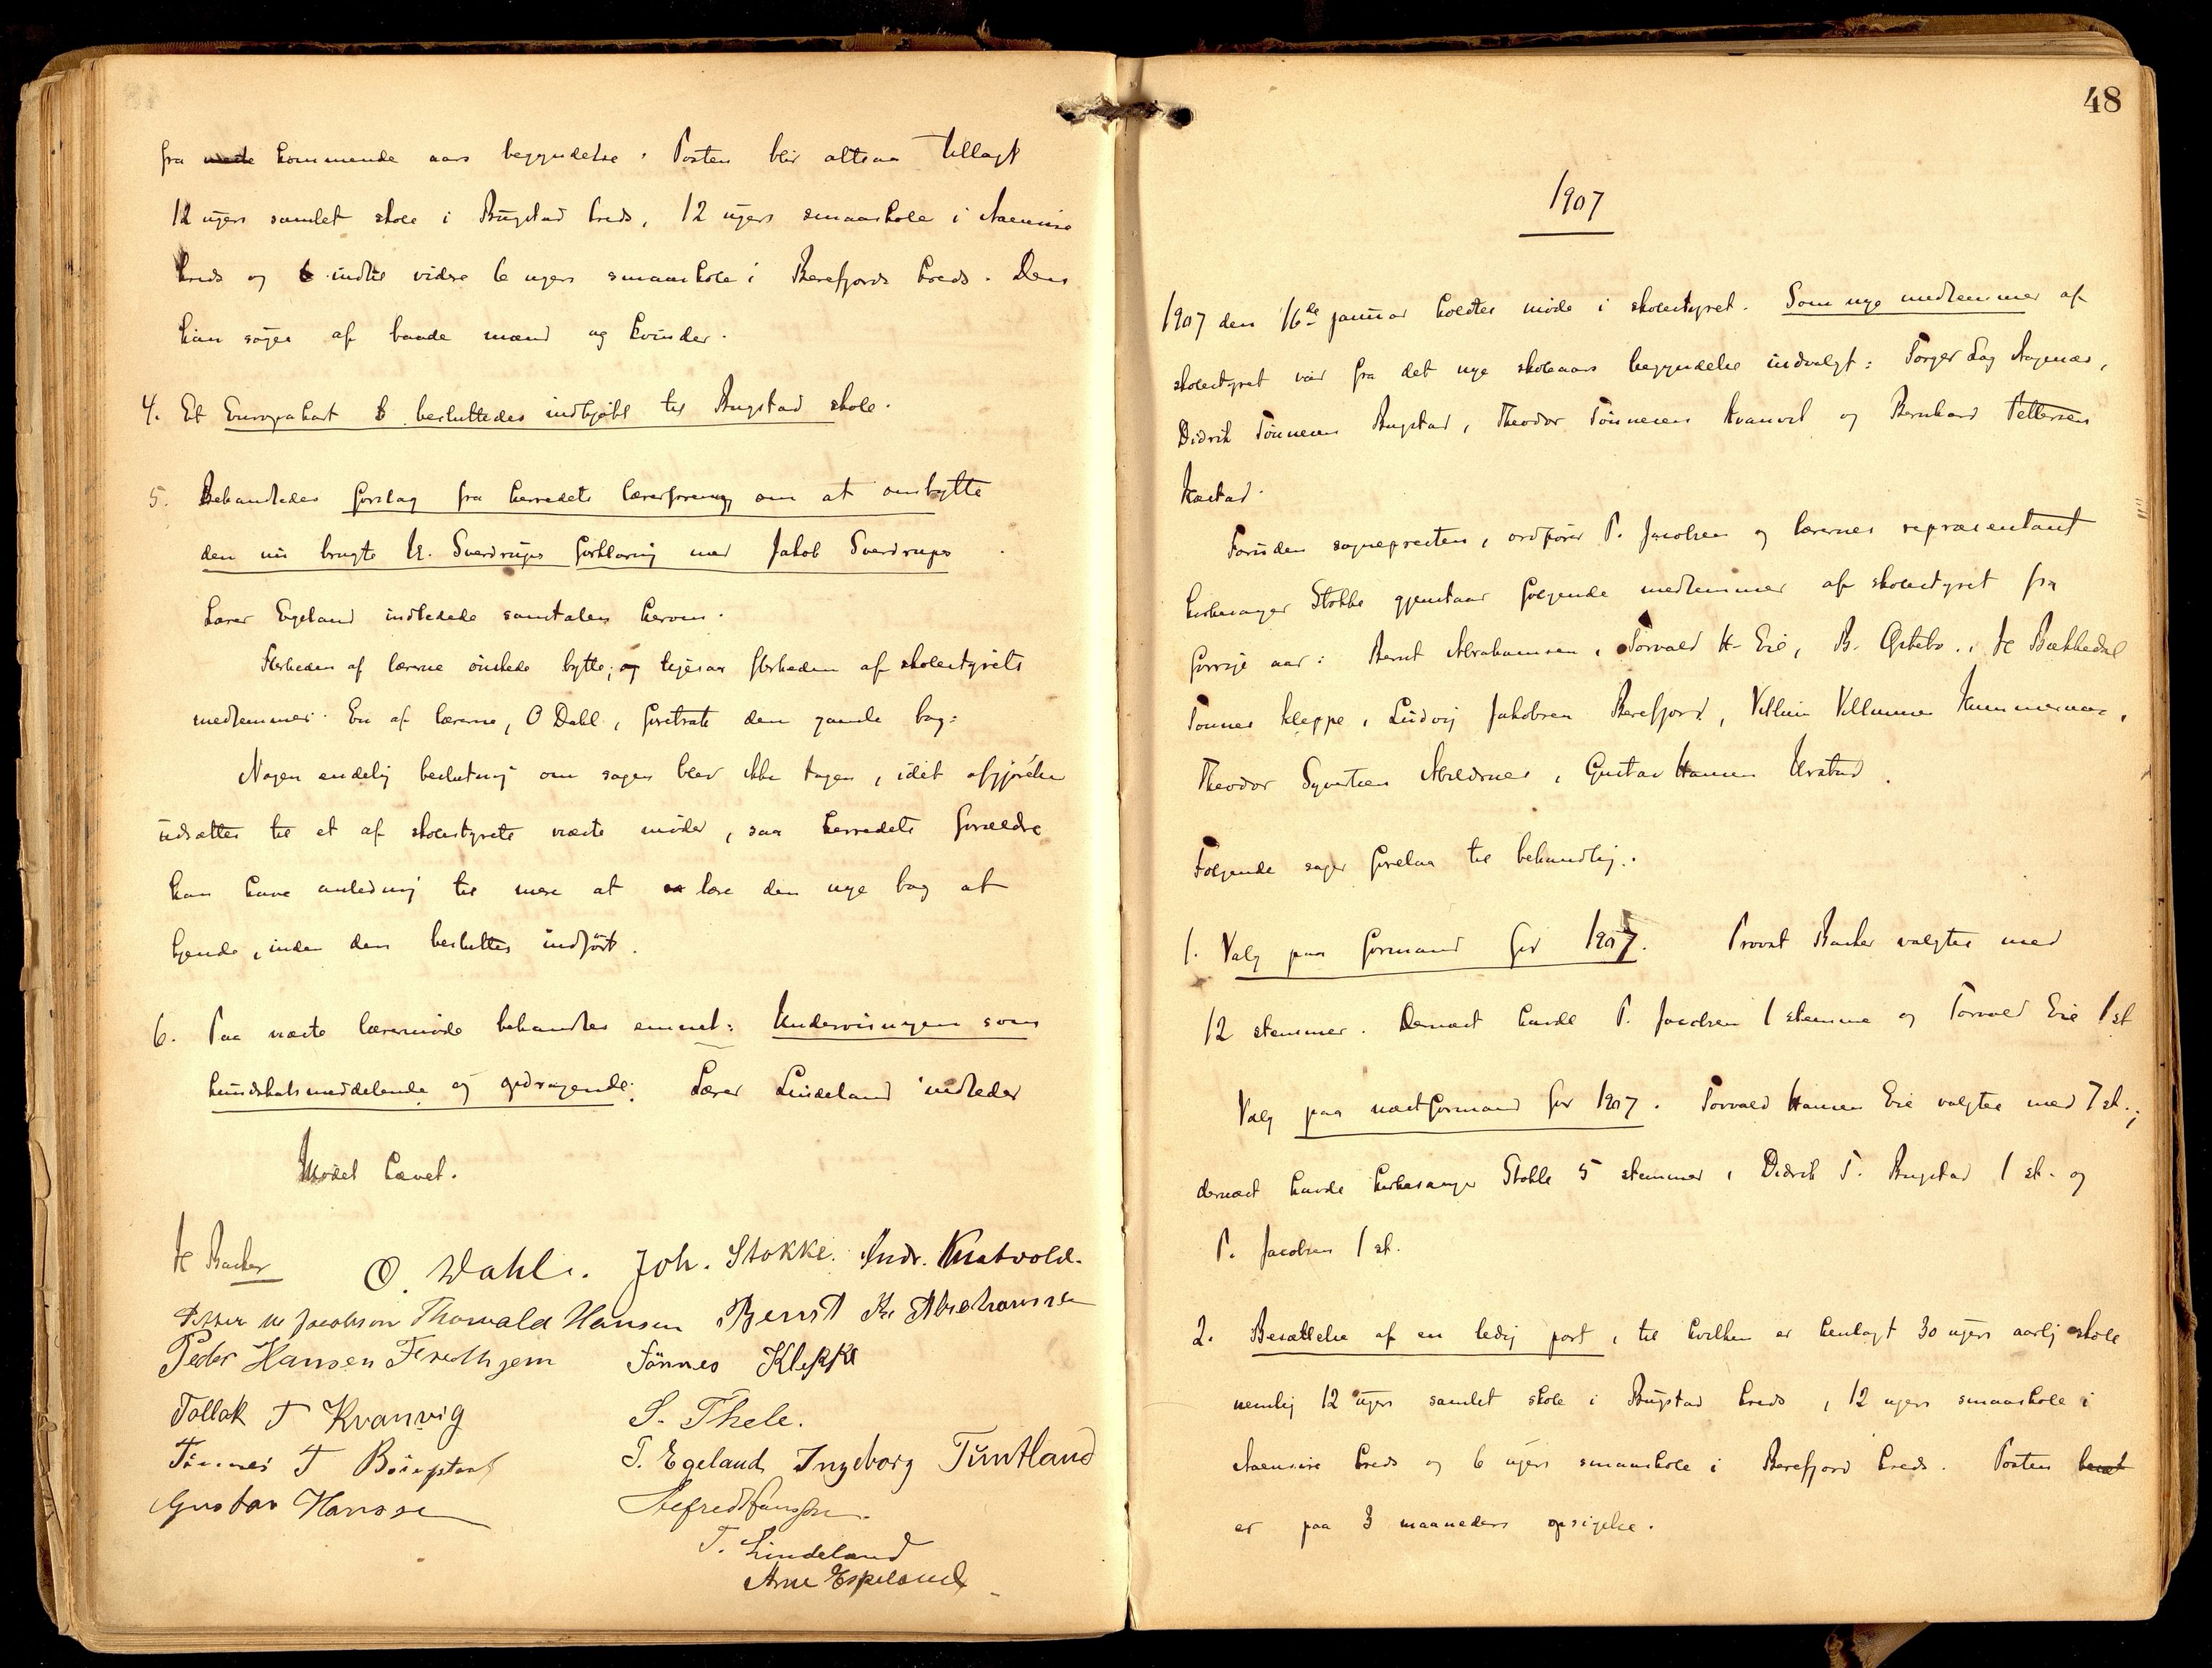 fra kommende aars begyndelse. Posten blir altsaa tillagt
12 ugers samlet skole i Bugstad kreds, 12 ugers smaaskole i
kreds og indtil videre 6 ugers smaaskole i Berefjords kreds. Den
kan søges af baade mænd og kvinder.
4. Et Europakart besluttedes indkjøbt til Bugstad skole.
5. Behandledes forslag fra herredets lærerforening om at ombytte
den nu brugte H. Sverdrups forklaring med Jakob Sverdrups
Lærer Egeland indledede samtalen herom.
Flerheden af lærerne ønskede bytte; og ligesaa flerheden af skolestyrets
medlemmer. En af lærerne, O Dahl, foretrak den gamle bog.
Nogen endelig beslutning om sagen blev ikke tagen, idet afgjørelsen
udsættes til et af skolestyrets næste møder, saa herredets forældre
kan have anledning til mere at lære den nye bog at
kjende, inden den besluttes indført.
6. Paa næste lærermøde behandles emnet: Undervisningen som
kundskabsmeddelende og opdragende. Lærer Lindeland indleder
Mødet hævet.
H Barker O. Dahl. Joh. Stokke. Andr. Kvatvold.
Petter M Jacobsen Thorvald Hansen Bernt Kr Abrahamsen
Peder Hansen Fredhjem Tönnes Kleppe
Tollak T Kvanvig S. Thele.
Tönnes T Bougstad T. Egeland Ingeborg Tuntland
Gustav Hansen
T. Lindeland
Arne Espeland
48
1907
1907 den 16de januar holdtes møde i skolestyret. Som nye medlemmer af
skolestyret var fra det nye skoleaars begyndelse indvalgt: Torger Dag
Didrik Tønnesen Bugstad, Theodor Tønnesen Kvanvik og Bernhard Pettersen
Forüden sognepresten, ordfører P. Jacobsen og lærernes repræsentant
kirkesanger Stokke gjenstaar følgende medlemmer af skolestyret fra
forrige aar: Bernt Abrahamsen, Torvald H. Eie, B. H Bækkedal
Tønnes Kleppe, Ludvig Jakobsen Berefjord, Villum Villumsen
Theodor Syvertsen Abelsnes, Gustav Hansen Urstad.
Følgende sager forelaa til behandling.
1. Valg paa formand for 1907. Provst Barker valgtes med
12 stemmer. Dernæst havde P. Jacobsen 1 stemme og Torvald Eie 1 st
Valg paa næstformand for 1907. Torvald Hansen Eie valgtes med 7 st.;
dernæst havde kirkesanger Stokke 5 stemmer, Didrik T. Bugstad 1 st. og
P. Jacobsen 1 st.
2. Besættelse af en ledig post, til hvilken er henlagt 30 ugers aarlig skole
nemlig 12 ugers samlet skole i Bugstad kreds, 12 ugers smaaskole i
kreds og 6 ugers smaaskole i Berefjord kreds. Posten
er paa 3 maaneders opsigelse.